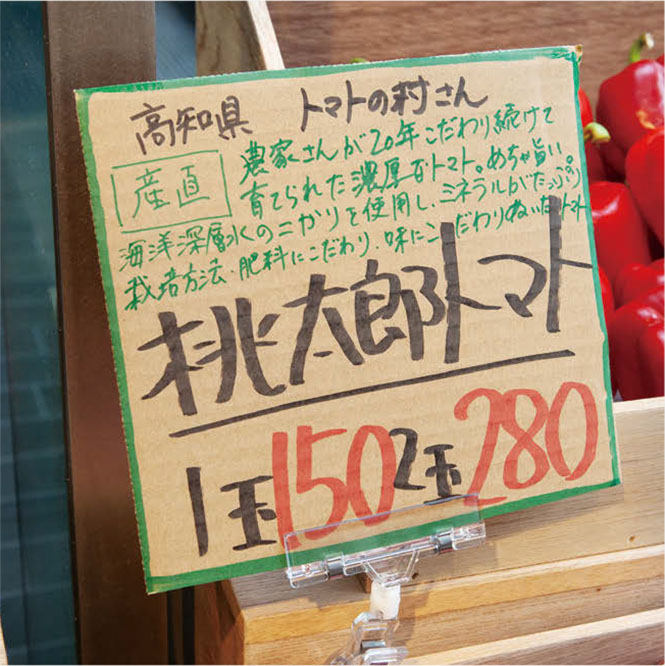 高知県 トマトの村さん
産直
農家さんが20年こだわり続けて
育てられた濃厚なトマト。めちゃ旨い。
海洋深層水のにがりを使用し、ミネラルがたっぷり
栽培方法・肥料にこだわり、味にこだわりぬいたトマト
桃太郎トマト
1玉150 2玉280